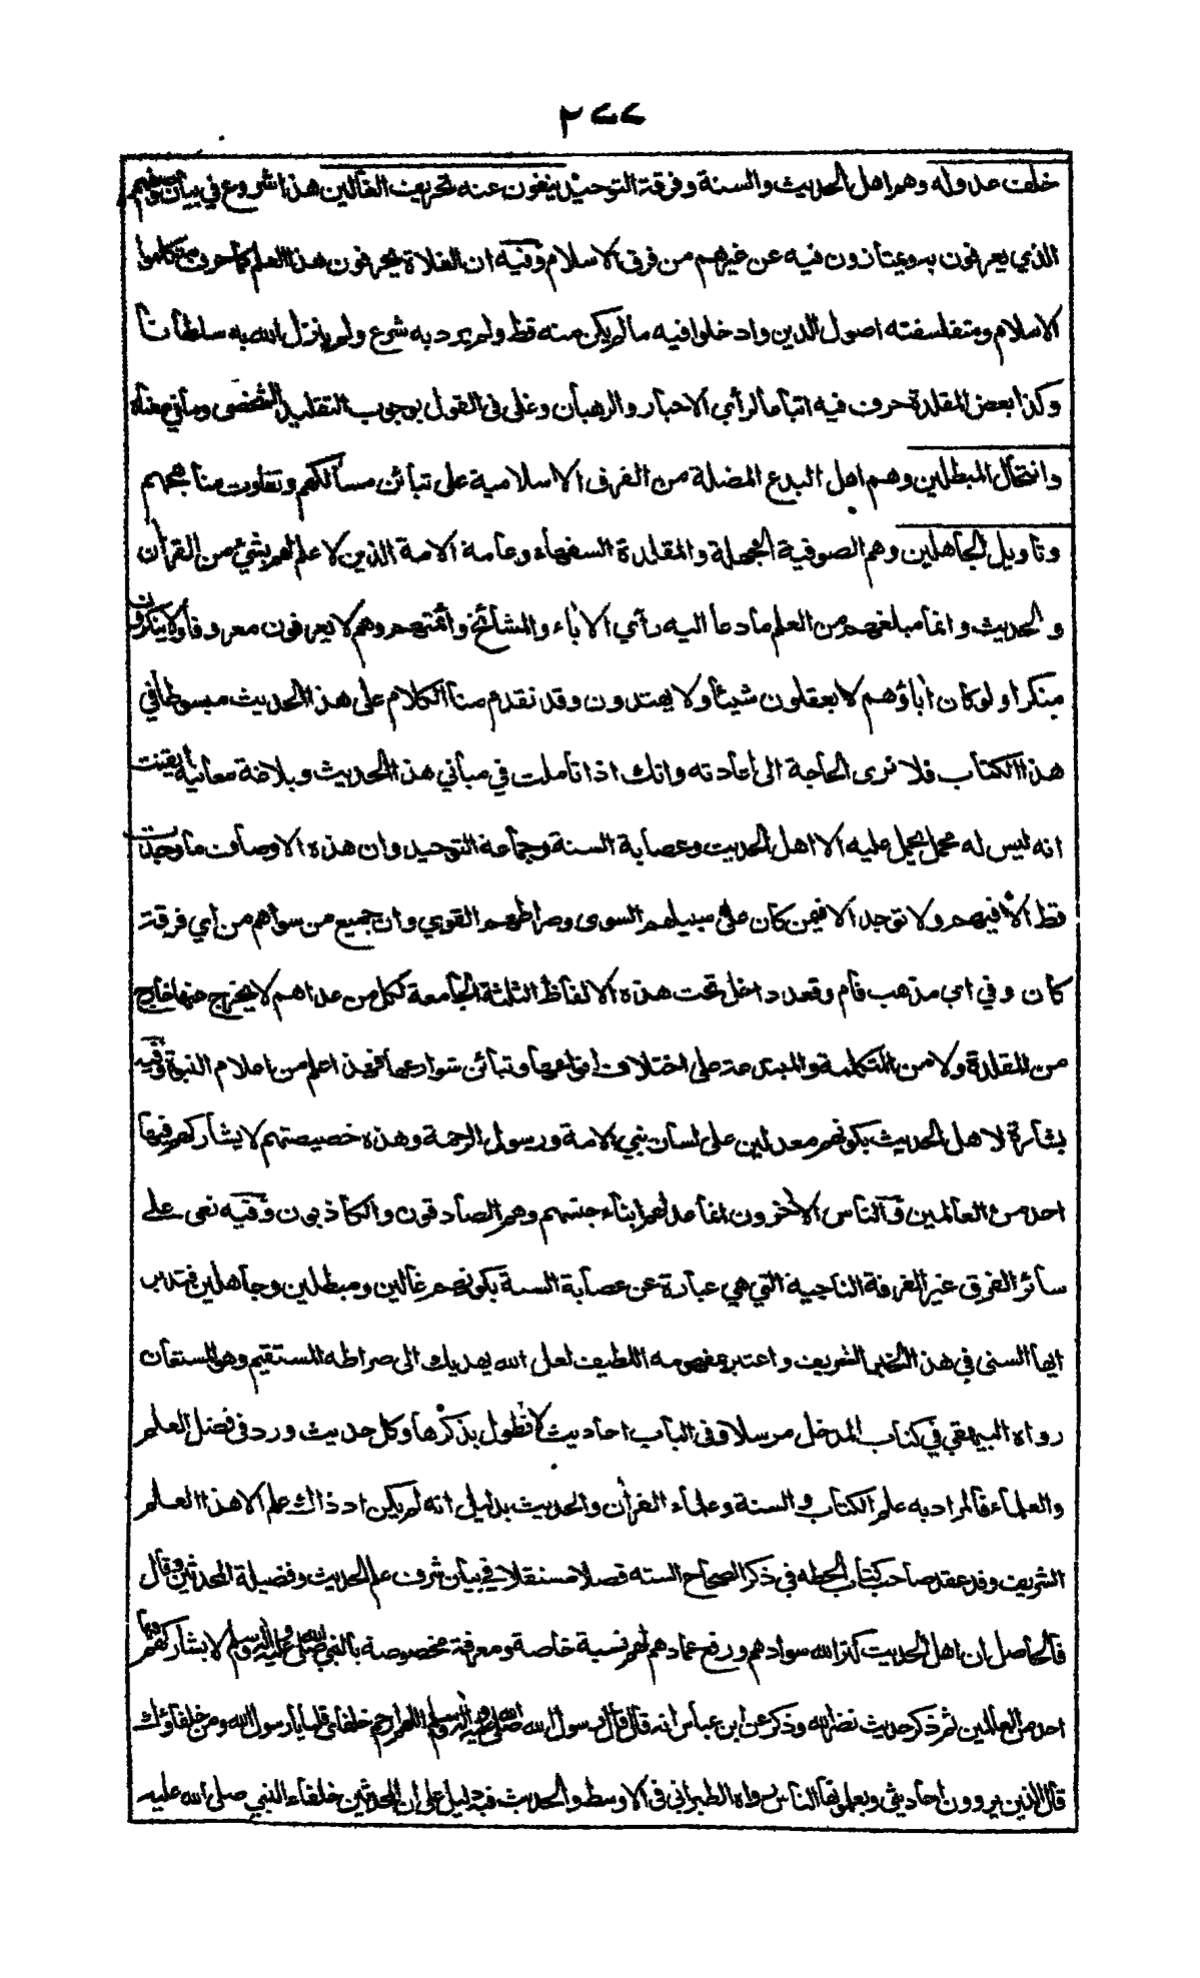 ٢٧٧
خلف عدوله وهم اهل الحديث والسنة وفرقة التوحيد ينفون عنه تحريف الغالين هذا شروع في بيان وصفهم
الذي يعرفون به ويمتازون فيه عن غيرهم من فرق الاسلام وفيه ان الغلاة يحرفون هذا العلم كما حرف متكلموا
الاسلام ومتفلسفته اصول الدين وادخلوا فيه مالم يكن منه قط ولم يرد به شرع ولم ينزل الله به سلطانا
وكذا بعض المقلدة حرف فيه اتباعا لرأي الاحبار والرهبان وغلى فى القول بوجوب التقليد الشخصى وما في معناه
وانتحال المبطلين وهم اهل البدع المضلة من الفرق الاسلامية على تبائن مسالكهم وتفاوت مناهجهم
وتأويل الجاهلين وهم الصوفية الجهلة والمقلدة السفهاء وعامة الامة الذين لا علم لهم بشئ من القرأن
والحديث وانما مبلغهم من العلم ما دعا اليه رأي الأباء والمشائخ وأئمتهم وهم لا يعرفون معروفا ولا ينكرون
منكرا ولو كان أباؤهم لا يعقلون شيئا ولا يهتدون وقد تقدم منا الكلام على هذا الحديث مبسوطا في
هذا الكتاب فلا نرى الحاجة الى اعادته وانك اذا تأملت في مباني هذا الحديث وبلاغة معانيه أيقنت
انه ليس له محمل يحمل عليه الا اهل الحديث وعصابة السنة وجماعة التوحيد وان هذه الاوصاف ما وجدت
قط الا فيهم ولا توجد الا فيمن كان على سبيلهم السوى وصراطهم القوي وان جميع من سواهم من أي فرقة
كان وفي اي مذهب قام وقعد داخل تحت هذه الالفاظ الثلثة الجامعة لكل من عداهم لا يخرج منها خارج
من المقلدة ولا من المتكلمة والمبتدعة على اختلاف انواعها وتبائن فهذا علم من اعلام النبوة وفيه
بشارة لاهل الحديث بكونهم معدلين على لسان نبي الامة ورسول الرحمة وهذه خصيصتهم لا يشاركهم فيها
احد من العالمين والناس الأخرون انما عدلهم ابناء جنسهم وهم الصادقون والكاذبون وفيه نعى على
سائر الفرق غير الفرقة الناجية التي هي عبارة عن عصابة السنة بكونهم غالين ومبطلين وجاهلين فتدبر
ايها السنى في هذا الخبر الشريف واعتبر بمفهومه اللطيف لعل الله يهديك الى صراطه المستقيم وهو المستعان
رواه البيهقي في كتاب المدخل مرسلا وفى الباب احاديث لا نطول بذكرها وكل حديث ورد فى فضل العلم
والعلماء فالمراد به علم الكتاب والسنة وعلماء القرأن والحديث بدليل انه لم يكن اذ ذاك علم الا هذا العلم
الشريف وقد عقد صاحب كتاب الحطه في ذكر الصحاح السته فصلا مستقلا في بيان شرف علم الحديث وفضيلة المحدثين وقال
فالحاصل ان اهل الحديث كثر الله سوادهم ورفع عمادهم لهم نسبة خاصة ومعرفة مخصوصة بالنبي صلى الله عليه وآله وسلم لا يشاركهم فيها
احد من العالمين ثم ذكر حديث نضر الله وذكر عن ابن عباس انه قال قال رسول الله صلى الله عليه وآله وسلم اللهم ارحم خلفاى قلنا يا رسول الله ومن خلفاؤك
قال الذين يروون احاديثى ويعلمونها الناس رواه الطبرانى فى الاوسط والحديث فيه دليل على ان المحدثين خلفاء النبي صلى الله عليه